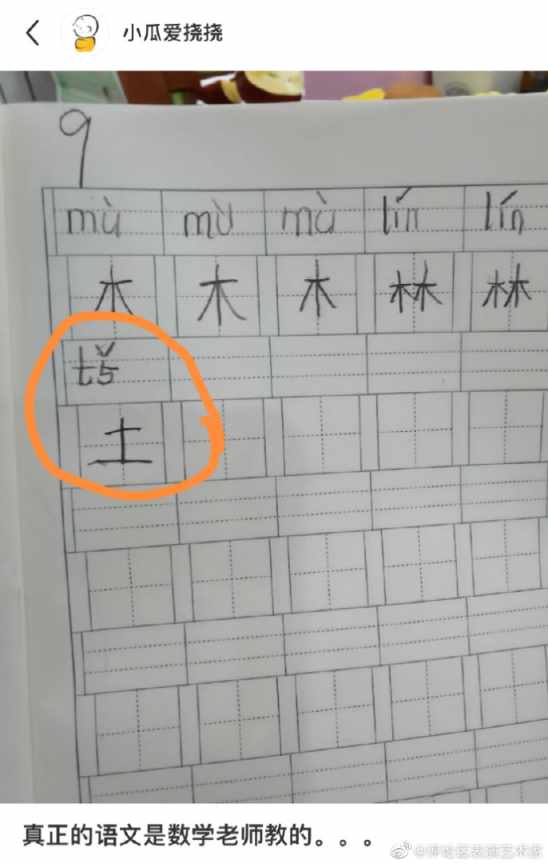 小瓜爱挠挠
9
mù mù mù lín lín
木 木 木 林 林
t5̌
土
真正的语文是数学老师教的。。。